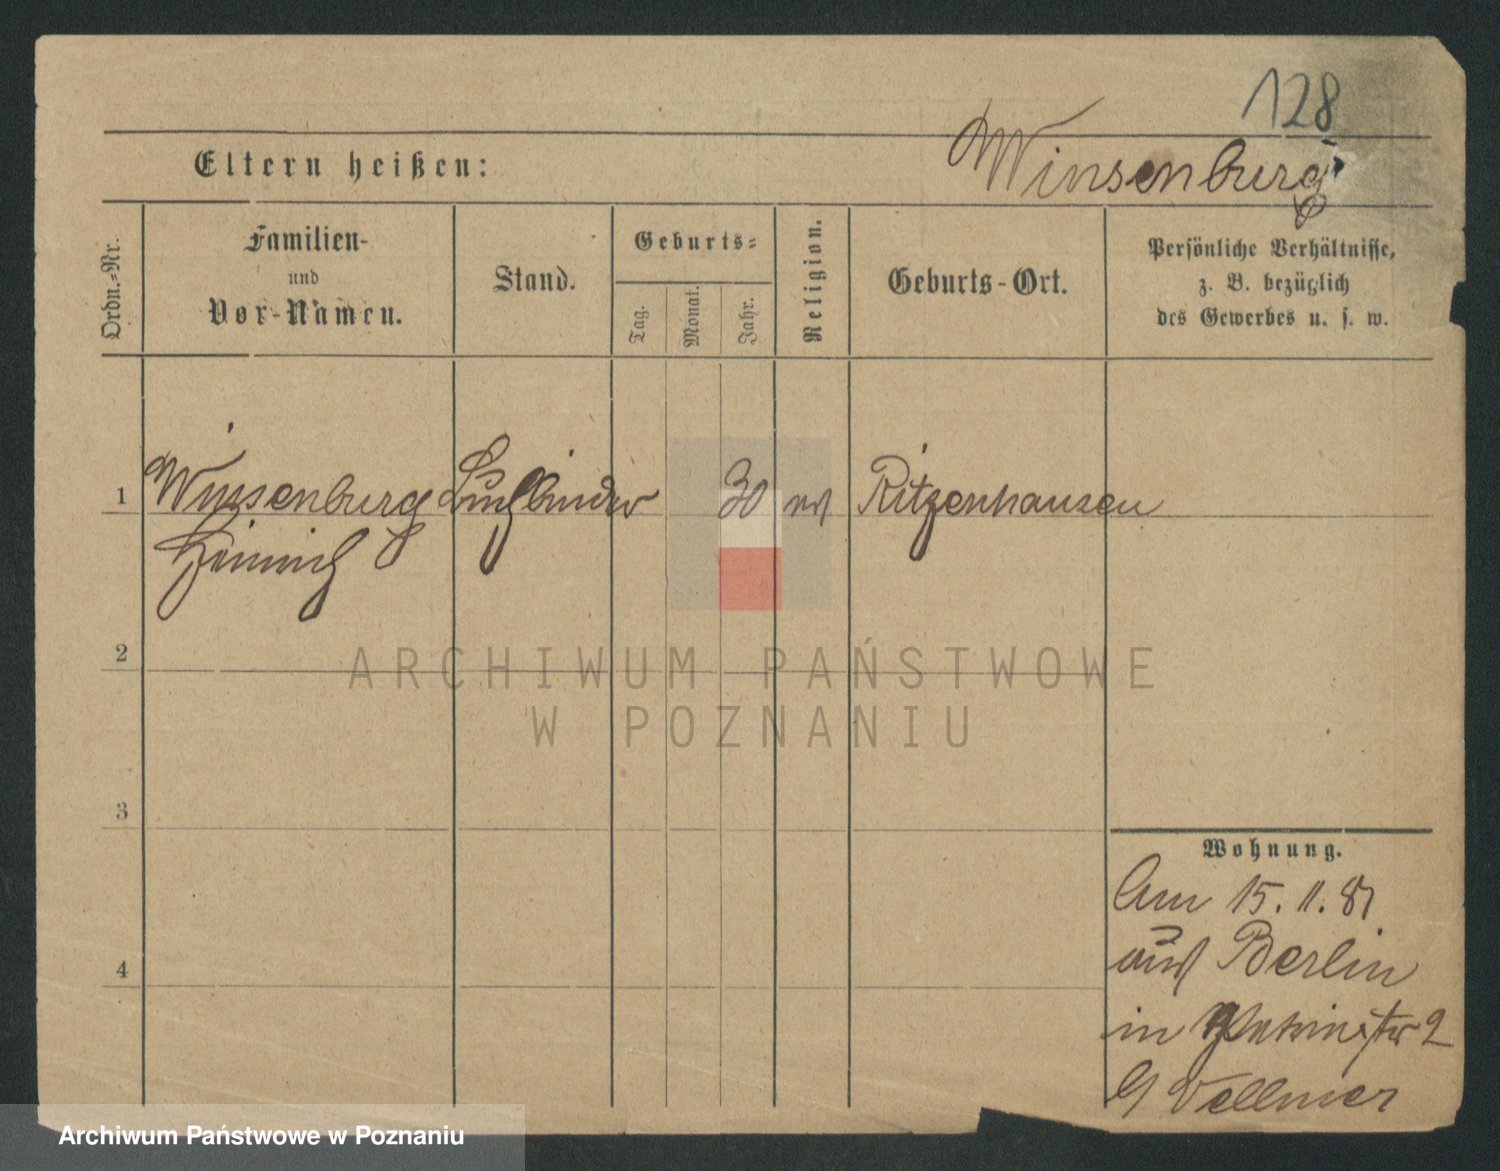 128
Eltern heißen: Winsenburg
Ordn.-Nr.
Familien-
und
Vor-Namen.
Stand.
Geburts-
Tag.
Monat.
Jahr.
Religion.
Geburts-Ort.
Persönliche Verhältnisse,
z. B. bezüglich
des Gewerbes u. s. w.
1 Winsenburg Buchbinder 30 ev Ritzenhausen
Heinrich
2
ARCHIWUM PAŃSTWOWE
W POZNANIU
3
Wohnung.
Am 15. 11. 87
aus Berlin
4
in 2
Vellmer
Archiwum Państwowe w Poznaniu